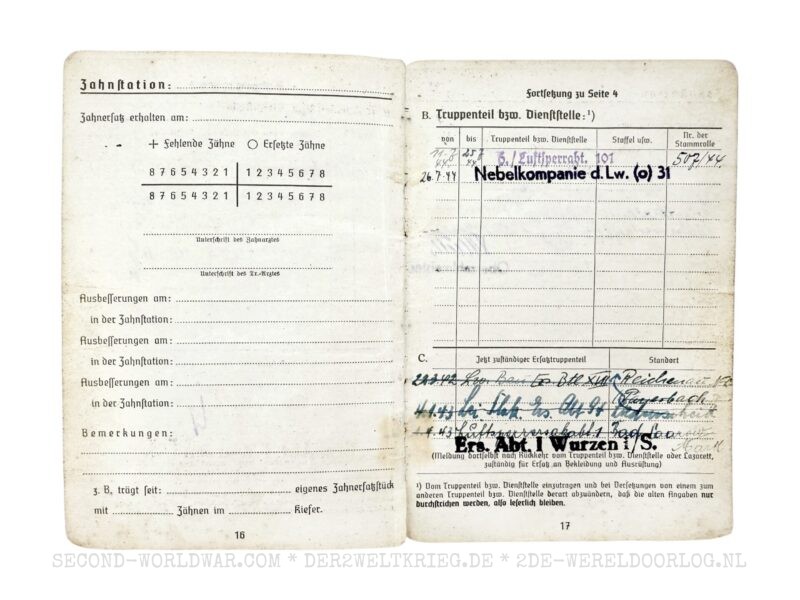 Zahnstation:
Zahnersatz erhalten am:
+ Fehlende Zähne ○ Ersetzte Zähne
8 7 6 5 4 3 2 1 | 1 2 3 4 5 6 7 8
8 7 6 5 4 3 2 1 | 1 2 3 4 5 6 7 8
Unterschrift des Zahnarztes
Unterschrift des Tr.-Arztes
Ausbesserungen am:
in der Zahnstation:
Ausbesserungen am:
in der Zahnstation:
Ausbesserungen am:
in der Zahnstation:
Bemerkungen:
z. B. trägt seit: eigenes Zahnersatzstück
mit Zähnen im Kiefer.
16
Fortsetzung zu Seite 4
B. Truppenteil bzw. Dienststelle:¹)
von bis Truppenteil bzw. Dienststelle Staffel usw. Nr. der Stammrolle
25.7 44 /Luftsperrabt. 101 507/44
26.7.44 Nebelkompanie d. Lw. (o) 31
C. Jetzt zuständiger Ersatztruppenteil Standort
Bau Btl XVII Reichenau
Payerbach
4.1.43 Ers. Abt.
Ers. Abt. I Wurzen i/S.
(Meldung dortselbst nach Rückkehr vom Truppenteil bzw. Dienststelle oder Lazarett,
zuständig für Ersatz an Bekleidung und Ausrüstung)
¹) Vom Truppenteil bzw. Dienststelle einzutragen und bei Versetzungen von einem zum
anderen Truppenteil bzw. Dienststelle derart abzuändern, daß die alten Angaben nur
durchstrichen werden, also leserlich bleiben.
17
SECOND-WORLDWAR.COM * DER2WELTKRIEG.DE * 2DE-WERELDOORLOG.NL